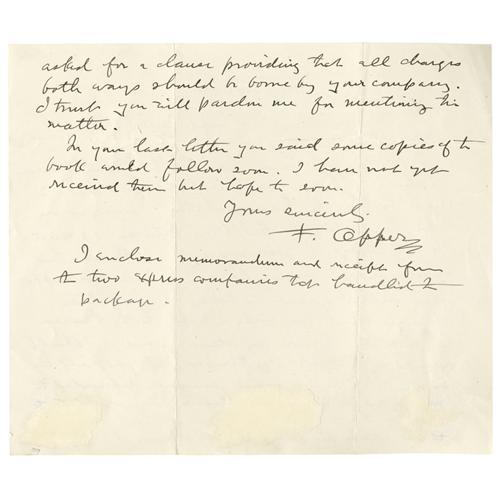 asked for a clause providing that all charges
both ways should be borne by your company.
I trust you will pardon me for mentioning the
matter.
In your last letter you said some copies of the
book would follow soon. I have not yet
received them but hope to soon.
Yours sincerely.
F. Opper
I enclose memorandum and receipt from
the two express companies that handled the
package.